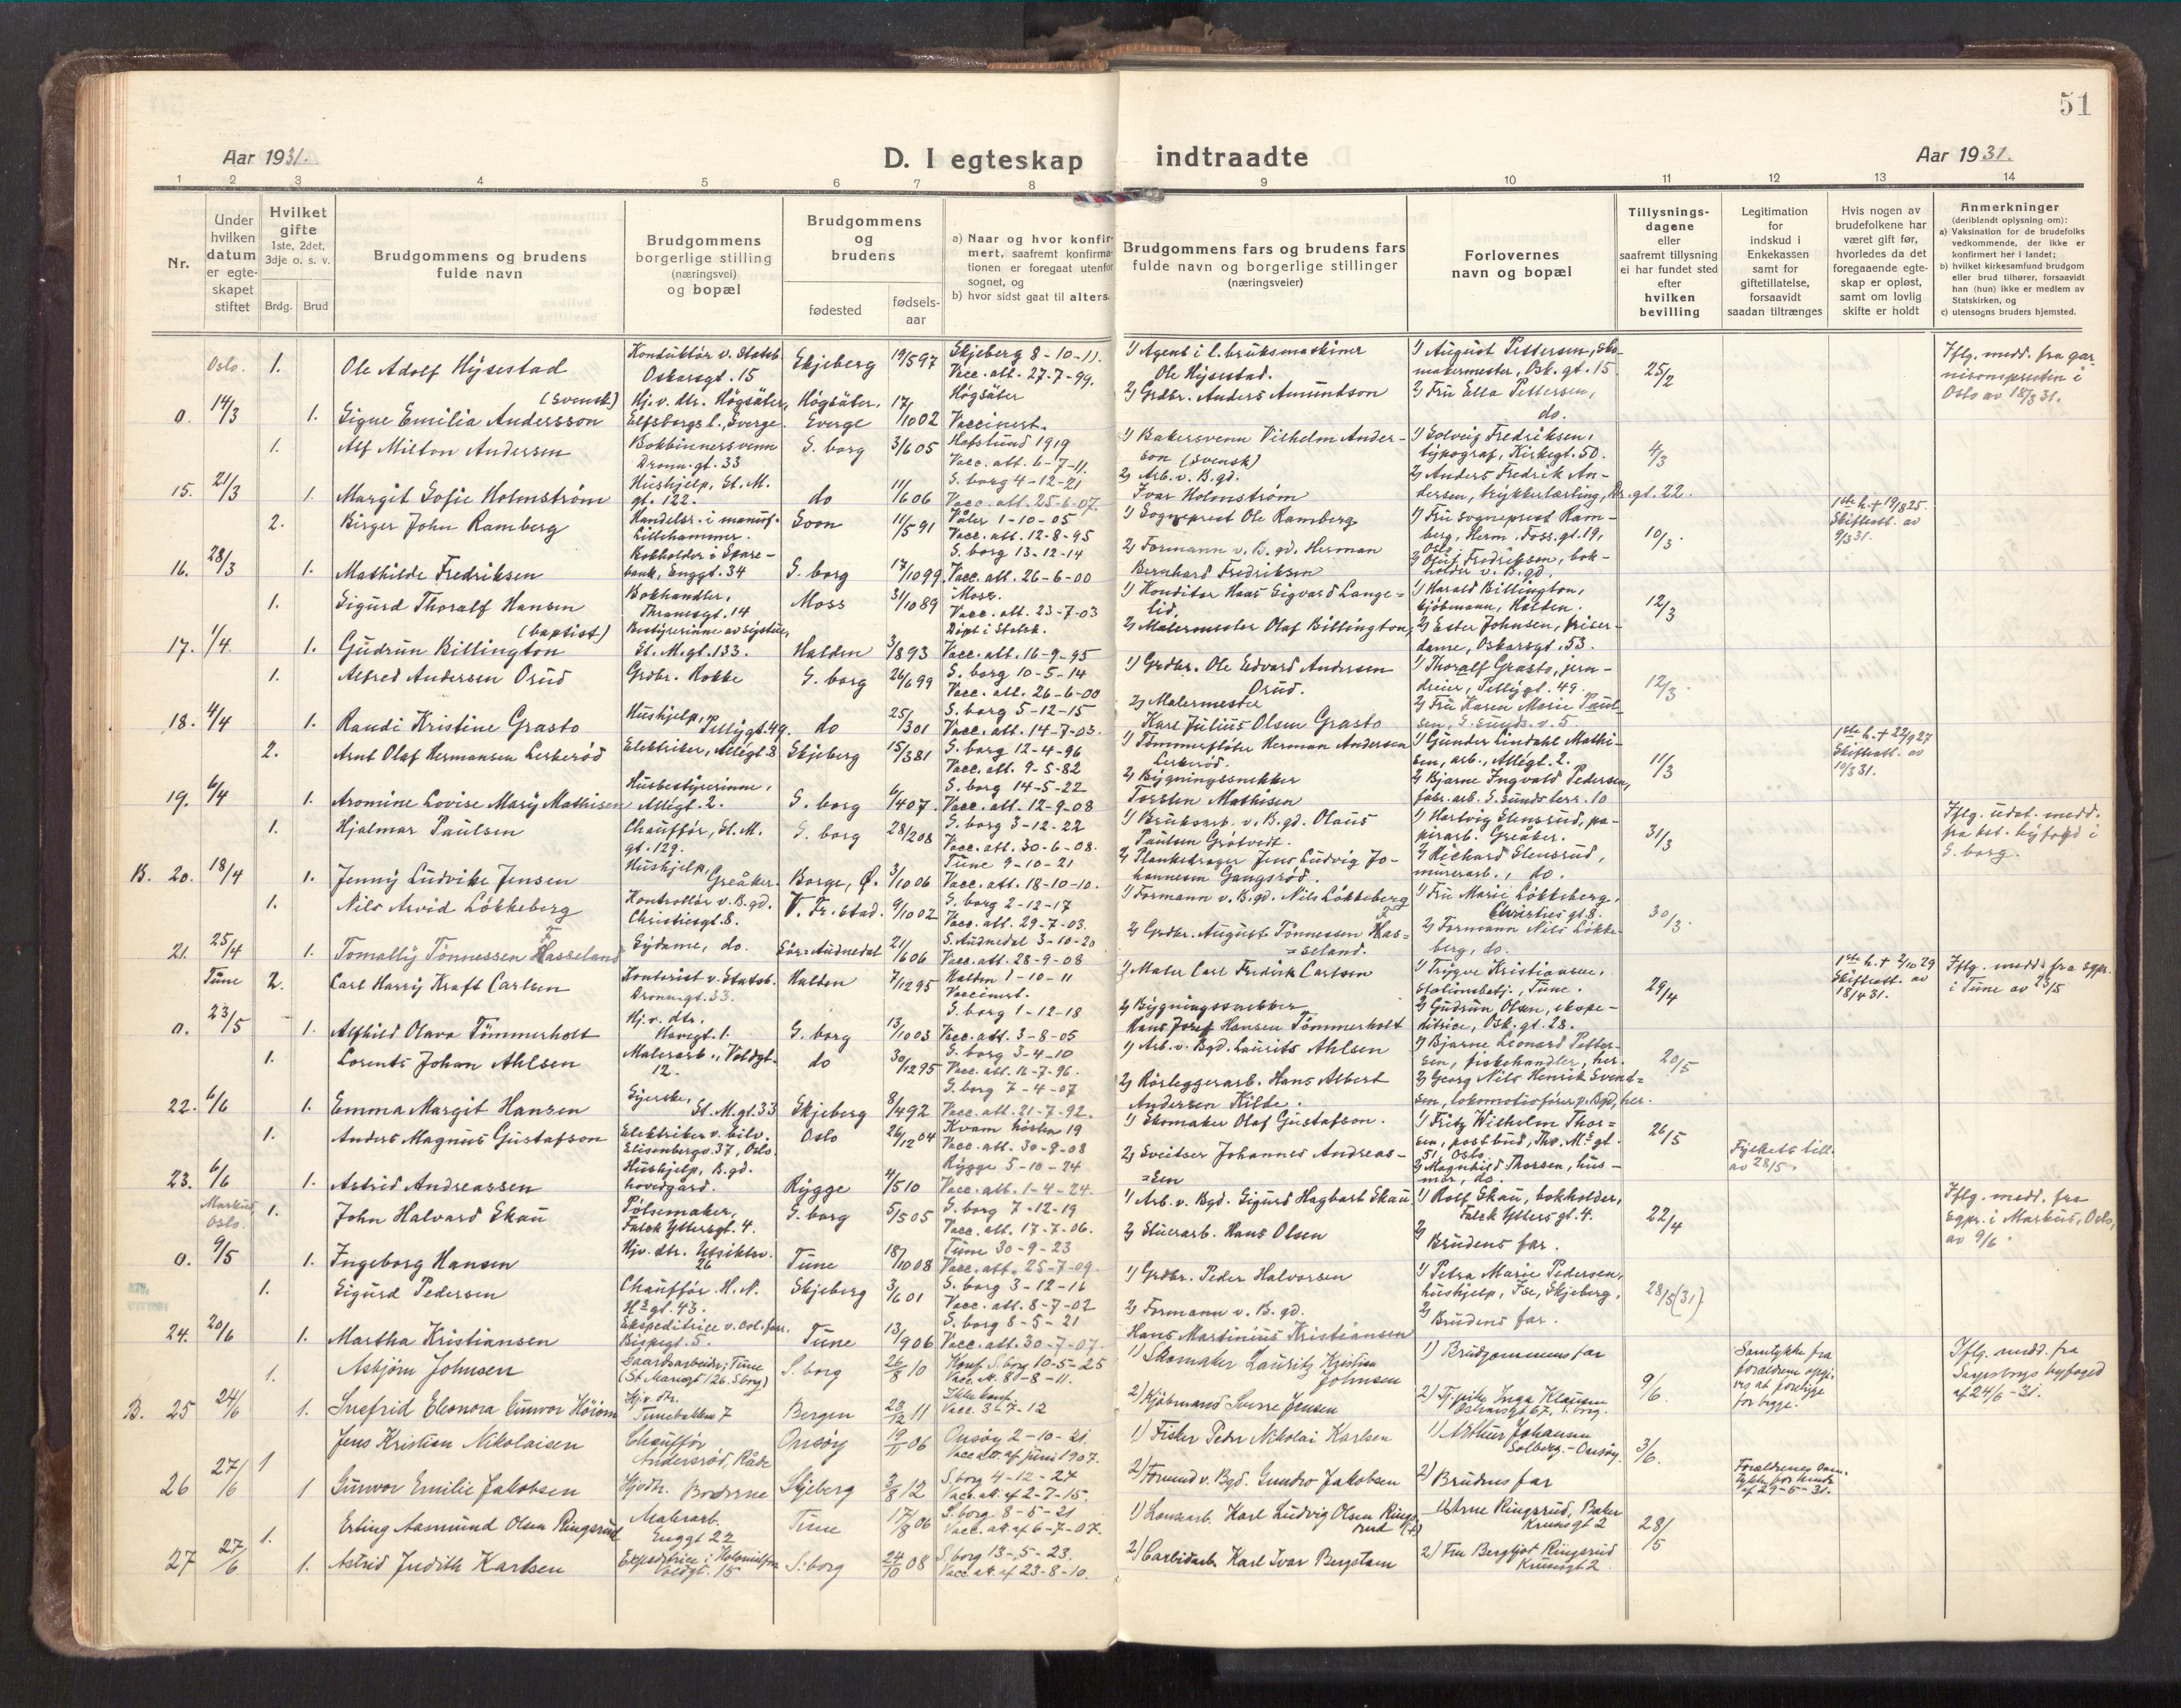 51
Aar 1931.
D. I egteskap indtraadte
Aar 1931.
1 2 3 4 5 6 7 8 9 10 11 12 13 14
Nr.
Under hvilken datum er egteskapet stiftet
Hvilket gifte 1ste, 2det, 3dje o. s. v.
Brdg. Brud
Brudgommens og brudens fulde navn
Brudgommens borgerlige stilling (næringsvei) og bopæl
Brudgommens og brudens
fødested
fødsels-aar
a) Naar og hvor konfirmert, saafremt konfirmationen er foregaat utenfor sognet, og
b) hvor sidst gaat til alters.
Brudgommens fars og brudens fars fulde navn og borgerlige stillinger (næringsveier)
Forlovernes navn og bopæl
Tillysningsdagene eller saafremt tillysning ei har fundet sted efter hvilken bevilling
Legitimation for indskud i Enkekassen samt for giftetillatelse, forsaavidt saadan tiltrænges
Hvis nogen av brudefolkene har været gift før, hvorledes da det foregaaende egteskap er opløst, samt om lovlig skifte er holdt
Anmerkninger (deriblandt oplysning om):
a) Vaksination for de brudefolks vedkommende, der ikke er konfirmert her i landet;
b) hvilket kirkesamfund brudgom eller brud tilhører, forsaavidt han (hun) ikke er medlem av Statskirken, og
c) utensogns bruders hjemsted.
Oslo. 1. Ole Adolf Hysestad Konduktør v. Statsb. Oskarsgt. 15 Skjeberg 19/5 97 Skjeberg 8-10-11. Vacc. att. 27-7-99. 1) Agent i l. bruksmaskiner Ole Hysestad. 1) August Pettersen, skomakermester, Osk. gt. 15 25/2 Iflg. medd. fra garnisonspresten i Oslo av 18/3 31.
0. 14/3 1. Signe Emilia Andersson (Svensk) Hj. v. dtr. Högsäter, Elfsborgs l., Sverge. Högsäter, Sverge 17/10 02 Högsäter Vaccinert. 2) Grdbr. Anders Amundson 2) Fru Ella Pettersen, do.
1. Alf Milton Andersen Bokbinnersvenn Dronn. gt. 33 S. borg 3/6 05 Hafslund 1919 Vacc. att. 6-7-11. 1) Bakersvenn Vilhelm Anderson (Svensk) 1) Solveig Fredriksen, typograf, Kirkegt. 50. 4/3
15. 21/3 1. Margit Sofie Holmström Hushjelp, St. M. gt. 122. do 11/6 06 S. borg 4-12-21 Vacc. att. 25-6-07. 2) Arb. v. B.gd. Ivar Holmström 2) Anders Fredrik Andersen, trykkerlærling, Dr. gt. 22.
2. Birger John Ramberg Handelsr. i manuf. Lillehammer. Soon 11/5 91 Våler 1-10-05 Vacc. att. 12-8-95 1) Sogneprest Ole Ramberg 1) Fru Sogneprest Ramberg, Herm. Foss. gt. 19, Oslo 10/3. 1ste h. + 19/8 25. Skifteatt. av 9/3 31.
16. 28/3 1. Mathilde Fredriksen Bokholder i Sparebank, Enggt. 34 S. borg 17/10 99 S. borg 13-12-14 Vacc. att. 26-6-00 2) Formann v. B. gd. Herman Bernhard Fredriksen 2) Fredriksen, bokholder v. B. gd.
1. Sigurd Thoralf Hansen Bokhandler, Thranesgt. 14 Moss 31/10 89 Moss. Vacc. att. 23-7-03 1) Konditor Haas Sigvard Langelid. 1) Harald Billington, kjøbmann, Halden. 12/3
17. 1/4. 1. Gudrun Billington (baptist) Bestyrerinne av systue, St. M. gt. 133. Halden 3/8 93 Døpt i Statsk. Vacc. att. 16-9-95 2) Malermester Olaf Billington, 2) Ester Johnsen, friserdame, Oskarsgt. 53.
1. Alfred Andersen Orud Grdbr. Rokke S. borg 26/6 99 S. borg 10-5-14 Vacc. att. 26-6-00 1) Grdbr. Ole Edvard Andersen Orud. 1) Thoralf Grasto, jerndreier, Pellygt. 49. 12/3.
18. 4/4 1. Randi Kristine Grasto Hushjelp, Pellygt. 49. do 25/3 01 S. borg 5-12-15 Vacc. att. 14-7-03. 2) Malermester Karl Julius Olsen Grasto 2) Fru Karen Marie Paulsen, S. sunds. v. 5
2. Arnt Olaf Hermansen Lerkerød Elektriker, Allégt. 8 Skjeberg 15/3 81 S. borg 12-4-96 Vacc. att. 9-5-82 1) Tømmerfløter Herman Andersen Lerkerød. 1) Gunder Lindahl Mathisen, arb., Allégt. 2. 11/3 1ste h. + 22/9 27 Skifteatt. av 10/3 31.
19. 6/4 1. Aromine Lovise Mary Mathisen Husbestyrerinne, Allégt. 2. S. borg 6/4 07. S. borg 14-5-22 Vacc. att. 12-9-08 2) Bygningssnekker Torsten Mathisen 2) Bjarne Ingvald Pedersen, fabr. arb. S. sunds terr. 10
1. Hjalmar Paulsen Chauffør, St. M. gt. 129. S. borg 28/2 08 S. borg 3-12-22 Vacc. att. 30-6-08. 1) Bruksarb. v. B. gd. Olaus Paulsen Grötvedt. 1) Hartvig Stensrud, papirarb. Greåker. 31/3 Iflg. udat. medd. fra kst. byfogd i S. borg.
B. 20. 18/4 1. Jenny Ludvike Jensen Hushjelp, Greåker. Borge, Ø. 3/10 06 Tune 9-10-21 Vacc. att. 18-10-10. 2) Plankedrager Jens Ludvig Johannesen Gangsrød. 2) Richard Stensrud, murerarb., do.
1. Nils Arvid Løkkeberg Kontrollør v. B. gd. Christiesgt. 8. V. Fr. stad. 9/10 02 S. borg 2-12-17 Vacc. att. 29-7-03. 1) Formann v. B. gd. Nils Løkkeberg 1) Fru Marie Løkkeberg, Christies gt. 8. 30/3.
21. 25/4 1. Tomally Tønnessen Hasseland Sydame, do. Sør-Audnedal 21/6 06 S. Audnedal 3-10-20 Vacc. att. 28-9-08 2) Grdbr. August Tønnessen Hasseland. 2) Formann Nils Løkkeberg, do.
Tune 2. Carl Harry Kraft Carlsen Kontorist v. Statsb. Dronn. gt. 33. Halden 7/12 95 Halden 1-10-11 Vaccinert. 1) Maler Carl Fredrik Carlsen 1) Trygve Kristiansen, stationsbetj., Tune. 29/4 1ste h. + 2/10 29 Skifteatt. av 18/4 31. Iflg. medd. fra sgpr. i Tune av 23/5
0. 23/5 1. Alfhild Olava Tømmerholt Hj. v. dtr. Havegt. 1. S. borg 13/10 03 S. borg 1-12-18 Vacc. att. 3-8-05 2) Bygningssnekker Hans Josef Hansen Tømmerholt 2) Gudrun Olsen, ekspeditrice, Osk. gt. 28.
1. Lorents Johan Ahlsen Malerarb., Voldgt. 12. do 30/12 95 S. borg 3-4-10 Vacc. att. 16-7-96. 1) Arb. v. Bgd. Laurits Ahlsen 1) Bjarne Leonard Pettersen, fiskehandler, her. 20/5
22. 6/6 1. Emma Margit Hansen Syerske, St. M. gt. 33 Skjeberg 8/4 92 S. borg 7-4-07 Vacc. att. 21-7-92. 2) Rørleggerarb. Hans Albert Andersen Kilde. 2) Georg Nils Henrik Svendsen, lokomotivfører p. Bgd, her.
1. Anders Magnus Gustafson Elektriker v. bilv. Elisenbergv. 37, Oslo. Oslo 26/12 04 Kvam høsten 19 Vacc. att. 30-9-08 1) Skomaker Olaf Gustafson. 1) Fritz Wilhelm Thorsen, postbud, Thv. Ms gt. 51, Oslo 26/5 Fylkets till. av 28/5.
23. 6/6 1. Astrid Andreassen Hushjelp, B. gd. hovedgård. Rygge 4/5 10 Rygge 5-10-24 Vacc. att. 1-4-24. 2) Sveitser Johannes Andreassen 2) Magnhild Thorsen, husmor, do.
Markus Oslo. 1. John Halvard Skau Pølsemaker, Falck Yttersgt. 4. S. borg 5/5 05 S. borg 7-12-19 Vacc. att. 17-7-06. 1) Arb. v. Bgd. Sigurd Hagbart Skau 1) Rolf Skau, bokholder, Falck Ytters gt. 4. 22/4 Iflg. medd. fra sgpr. i Markus, Oslo, av 9/6.
0. 9/5 1. Ingeborg Hansen Hjv. dtr. Utsiktsv. 26 Tune 18/10 08 Tune 30-9-23 Vacc. att. 25-7-09. 2) Stuerarb. Hans Olsen 2) Brudens far.
1. Sigurd Pedersen Chauffør. H. N. Hs gt. 43. Skjeberg 3/6 01 S. borg 3-12-16 Vacc. att. 8-7-02 1) Grdbr. Peder Halvorsen 1) Petra Marie Pedersen, hushjelp, Ise, Skjeberg. 28/5 (31)
24. 20/6 1. Martha Kristiansen Ekspeditrice v. col. forr. Bispegt. 5. Tune 13/9 06 S. borg 8-5-21 Vacc. att. 30-7-07. 2) Formann v. B. gd. Hans Martinius Kristiansen 2) Brudens far.
1. Asbjørn Johnsen Gaardsarbeider, Tune (St Mariegt 126. Sborg) S. borg 26/8 10 Konf. S. borg 10-5-25 Vacc. at. 80-8-11. 1) Skomaker Lauritz Kristian Johnsen 1) Brudgommens far 9/6. Samtykke fra forældrene opgives at foreligge for begge. Iflg. medd. fra Sarpsborgs byfogd af 24/6-31.
B. 25 24/6 1. Snefrid Eleonora Gunvor Hjv. dtr. Tunebakken 7 Bergen 28/12 11 Ikke konf. Vacc. 3-7-12 2) Kjøbmand Sverre Jensen 2) Tj. pike Inga Klausen Oskarsgt 67. S. borg.
1 Jens Kristian Nikolaisen Chauffør Anderssrød, Råde Onsøy 19/1 06 Onsøy 2-10-21. Vacc att. af juni 1907. 1) Fisker Peder Nikolai Karlsen 1) Arthur Johansen Solberg - Onsøy 3/6.
26 27/6 1 Gunvor Emilie Jakobsen Hjvdtr. Boderne Skjeberg 3/8 12 S. borg 4-12-24 Vacc. att. af 2-7-15. 2) Formd v. Bgd. Gundro Jakobsen 2) Brudens far Forældrenes samtykke for bruden af 29-5-31.
1. Erling Aasmund Olsen Ringsrud Malerarb. Enggt 22 Tune 17/8 06 S. borg 8-5-21 Vacc. att. af 6-7-07. 1) Karl Ludvig Olsen Ringsrud 1) Arne Ringsrud, Baker Krusesgt 2 28/5
27 27/6 1. Astrid Judith Karlsen Ekspeditrice i Kolonialforr. Voldgt. 15 S. borg 24/10 08 S. borg 13-5-23. Vacc. att. af 23-8-10. 2) Carbidarb. Karl Ivar Bergstam 2) Fru Bergljot Ringsrud Krusesgt. 2.